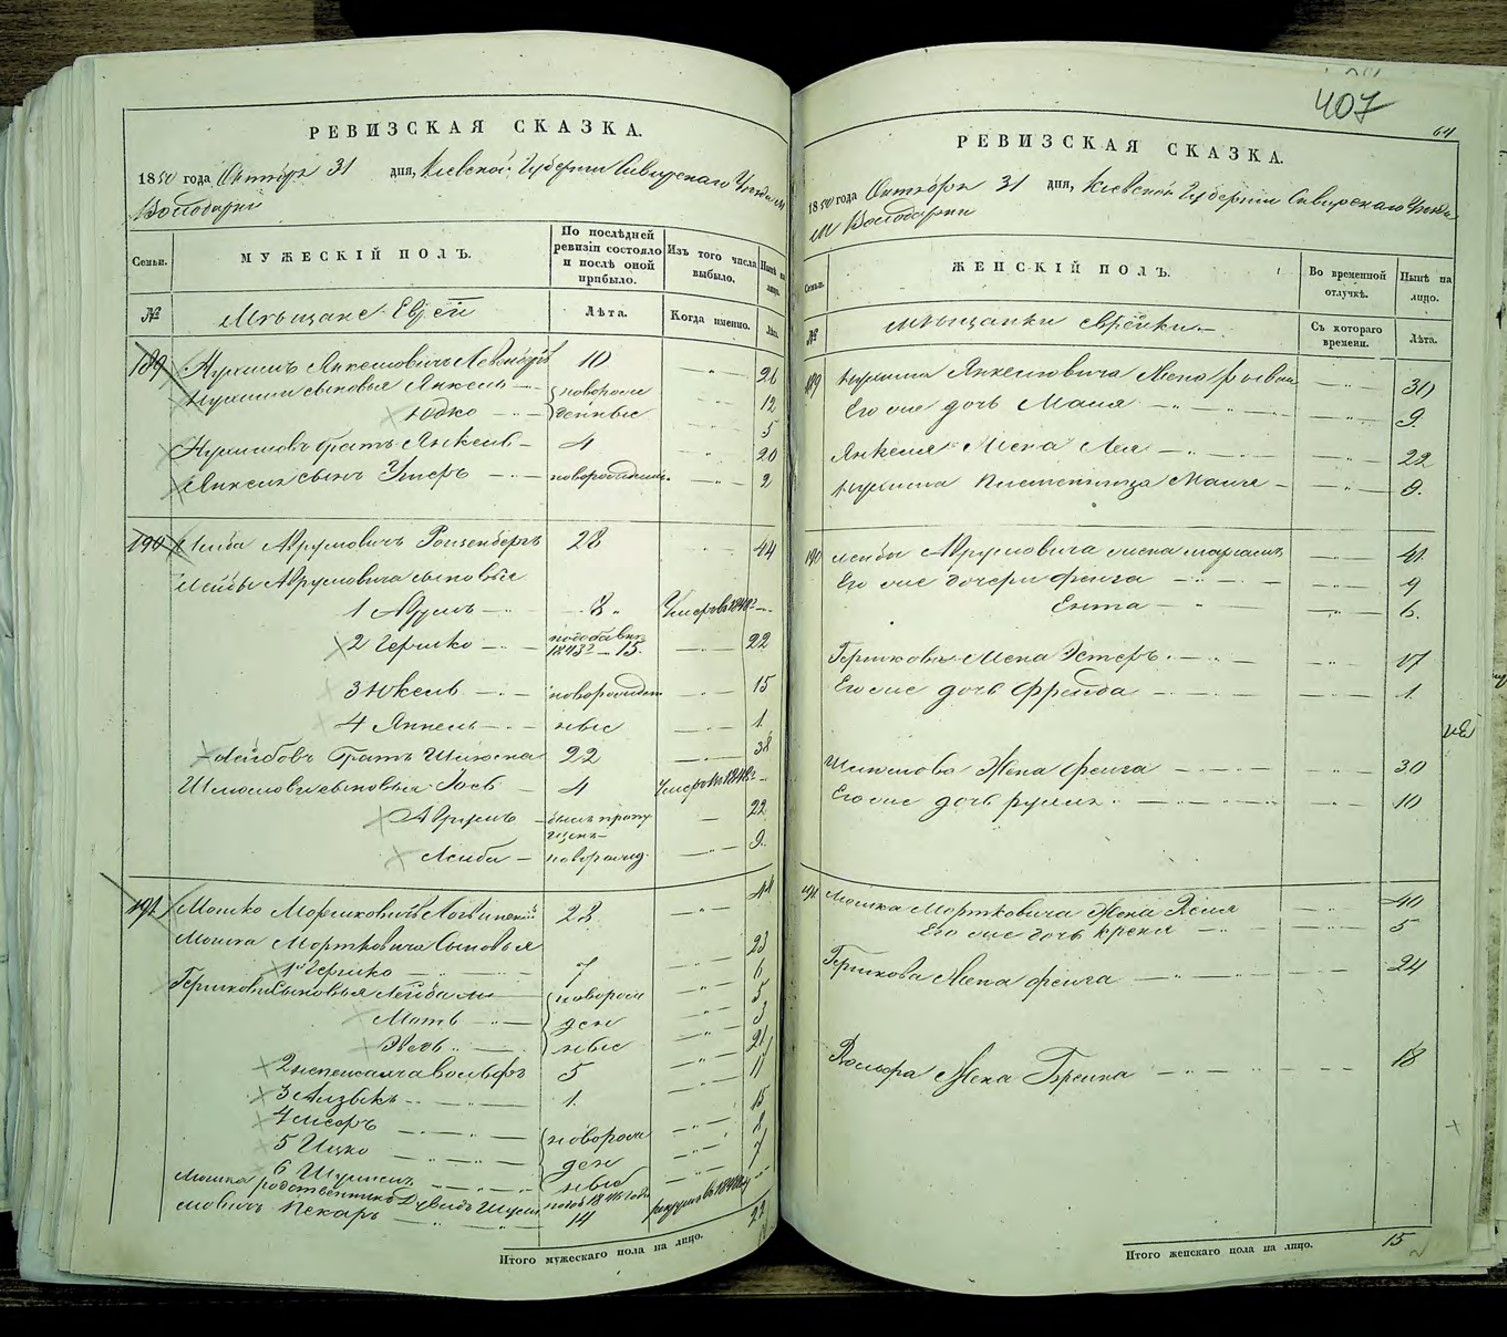 РЕВИЗСКАЯ СКАЗКА.
1850 года Октября 31 дня, Киевской Губернии Сквирскаго Уезда М
Володарки
Семьи.
МУЖЕСКІЙ ПОЛЪ.
По послѣдней ревизіи состояло и послѣ оной прибыло.
Изъ того числа выбыло.
Нынѣ на лицо.
№
Мѣщане Евреи
Лѣта.
Когда именно.
Лѣта.
189 Нухимъ Янкелювичъ 10 26
Нухима сыновья Янкель новорож 12
Юдко денные 5
Нухимовъ братъ Янкель 4 20
Янкеля сынъ новорожденный 2
190 Лейба Аврумовичъ Розенбергъ 28 44
Лейбы Аврумовича сыновья
1 Аврумъ 8 Умеръ въ 1848г
2 Гершко по добавк. 1843г 15 22
3 Юкель новорожден 15
4 Янкель ные 1
Лейбовъ братъ Шлиома 22 38
Шлиомовы сыновья Іось 4 Умеръ въ 1848г
Аврумъ былъ пропущенъ 22
Лейба новорожд. 9
191 Мошко Мортковичъ 28 44
Мошка Мортковича Сыновья
1й Гершко 7 23
Гершковы Сыновья Лейба новорож 6
Моть ден 5
ные 3
2 Вольфъ 5 21
3 1. 17
4 новорож 15
5 Ицко ден 8
6 ные 7
Мошка родственникъ Дувидъ по доб 1846 года
Пекарь 14
22
Итого мужескаго пола на лицо.
407
64
РЕВИЗСКАЯ СКАЗКА.
1850 года Октября 31 дня, Киевской Губернии Сквирскаго Уезда
М Володарки
Семьи.
ЖЕНСКІЙ ПОЛЪ.
Во временной отлучкѣ.
Нынѣ на лицо.
№
Мѣщанки Еврейки
Съ котораго времени.
Лѣта.
189 Нухима Янкелювича Жена Рывка 30
Его же дочь Маля 9.
Янкеля Жена Лея 22
Нухима Племянница Маля 9.
190 Лейбы Аврумовича жена Марьямъ 41
Его же дочери Фейга 9
Ента 6.
Гершкова Жена Эстеръ 17
Его же дочь Фрейда 1.
Шлиомова Жена Фейга 30
Его же дочь 10
191 Мошка Мортковича Жена 40
Его же дочь Крейня 5
Гершкова Жена Фейга 24
Вольфа Жена Брейна 18
Итого женскаго пола на лицо. 15